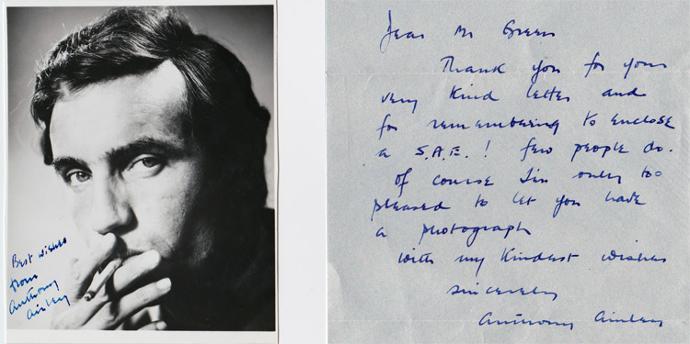 Best wishes
from
Anthony
Ainley
Dear Mr Green
Thank you for your
very kind letter and
for remembering to enclose
a S.A.E.! few people do.
Of course I'm only too
pleased to let you have
a photograph
with my kindest wishes
sincerely
Anthony Ainley